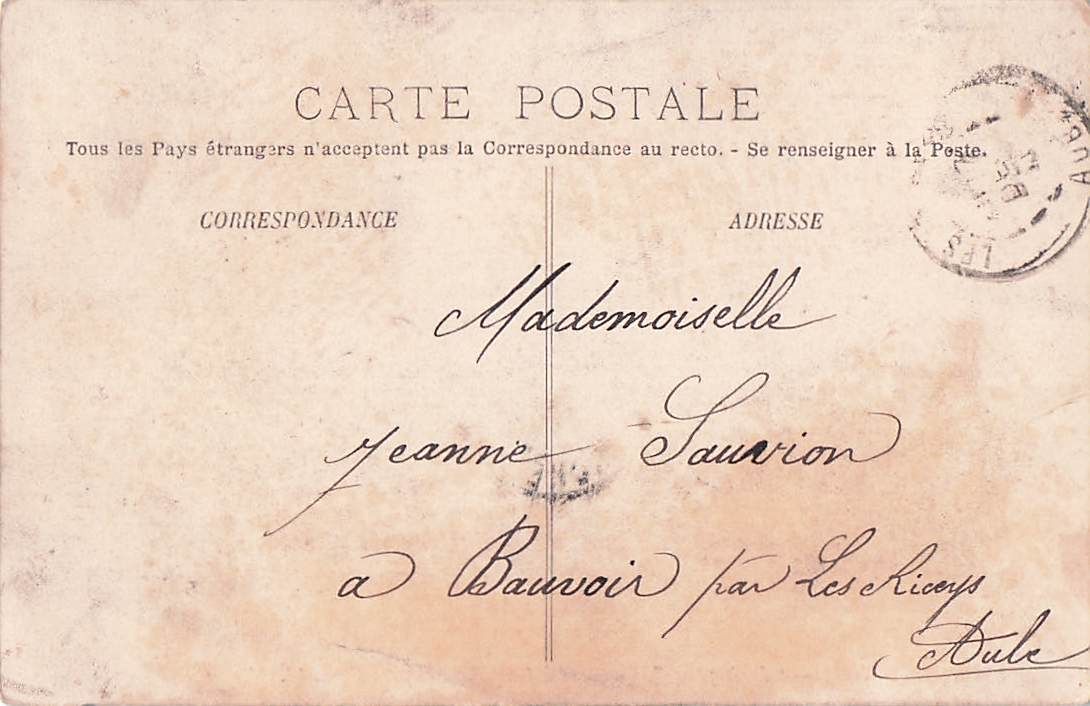 CARTE POSTALE
Tous les Pays étrangers n'acceptent pas la Correspondance au recto. - Se renseigner à la Poste.
CORRESPONDANCE
ADRESSE
Mademoiselle
Jeanne Sauvion
a Bauvoir par Les Riceys
Aube
LES
AUBE